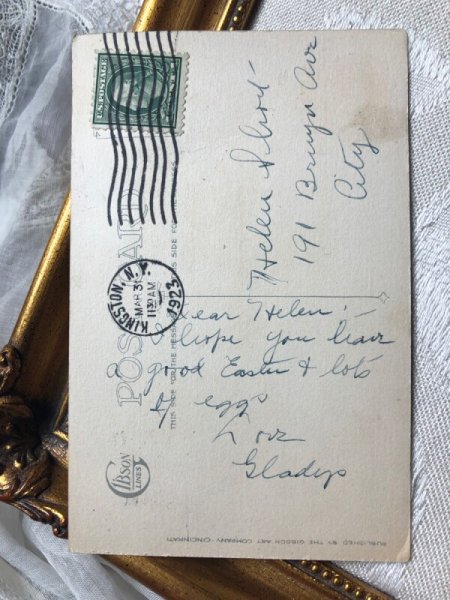 U.S. POSTAGE
POST CARD
KINGSTON, N.Y.
MAR 31
1130 AM
1923
THIS SIDE FOR THE MESSAGE
THIS SIDE FOR
Helen
191 Bruyn Ave
City
Dear Helen:-
hope you have
a good Easter & lots
of eggs
Love
Gladys
GIBSON
LINES
PUBLISHED BY THE GIBSON ART COMPANY - CINCINNATI